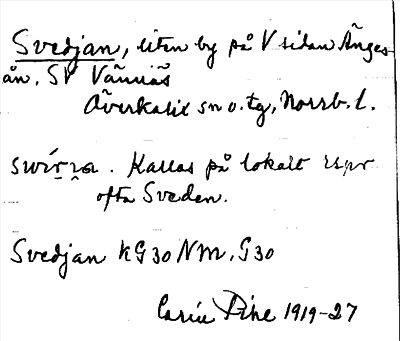 Svedjan, liten by på V sidan Änges-
ån, SV Vännäs
Överkalix sn o. tg, Norrb. l.
Kallas på lokalt rspr
ofta Sveden.
Svedjan KG30 NM. G30
Carin Pihl 1919-27